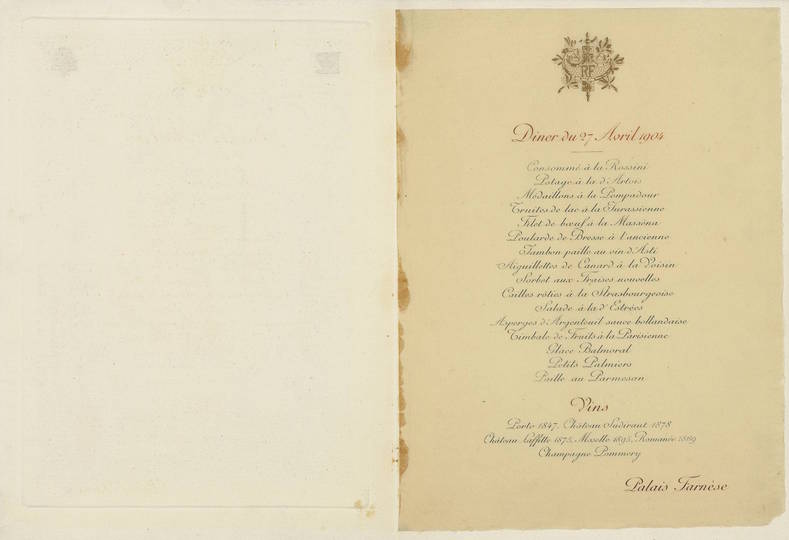 RF
Dîner du 27 Avril 1904
Consommé à la Rossini
Potage à la d'Artois
Médaillons à la Pompadour
Truites de lac à la Jurassienne
Filet de bœuf à la Masséna
Poularde de Bresse à l'ancienne
Jambon paille au vin d'Asti
Aiguillettes de Canard à la Voisin
Sorbet aux Fraises nouvelles
Cailles rôties à la Strasbourgeoise
Salade à la d'Estrées
Asperges d'Argenteuil sauce hollandaise
Timbale de Fruits à la Parisienne
Glace Balmoral
Petits Palmiers
Paille au Parmesan
Vins
Porto 1847, Château Suduraut 1878
Château Laffitte 1875, Moselle 1893, Romanée 1869
Champagne Pommery
Palais Farnèse